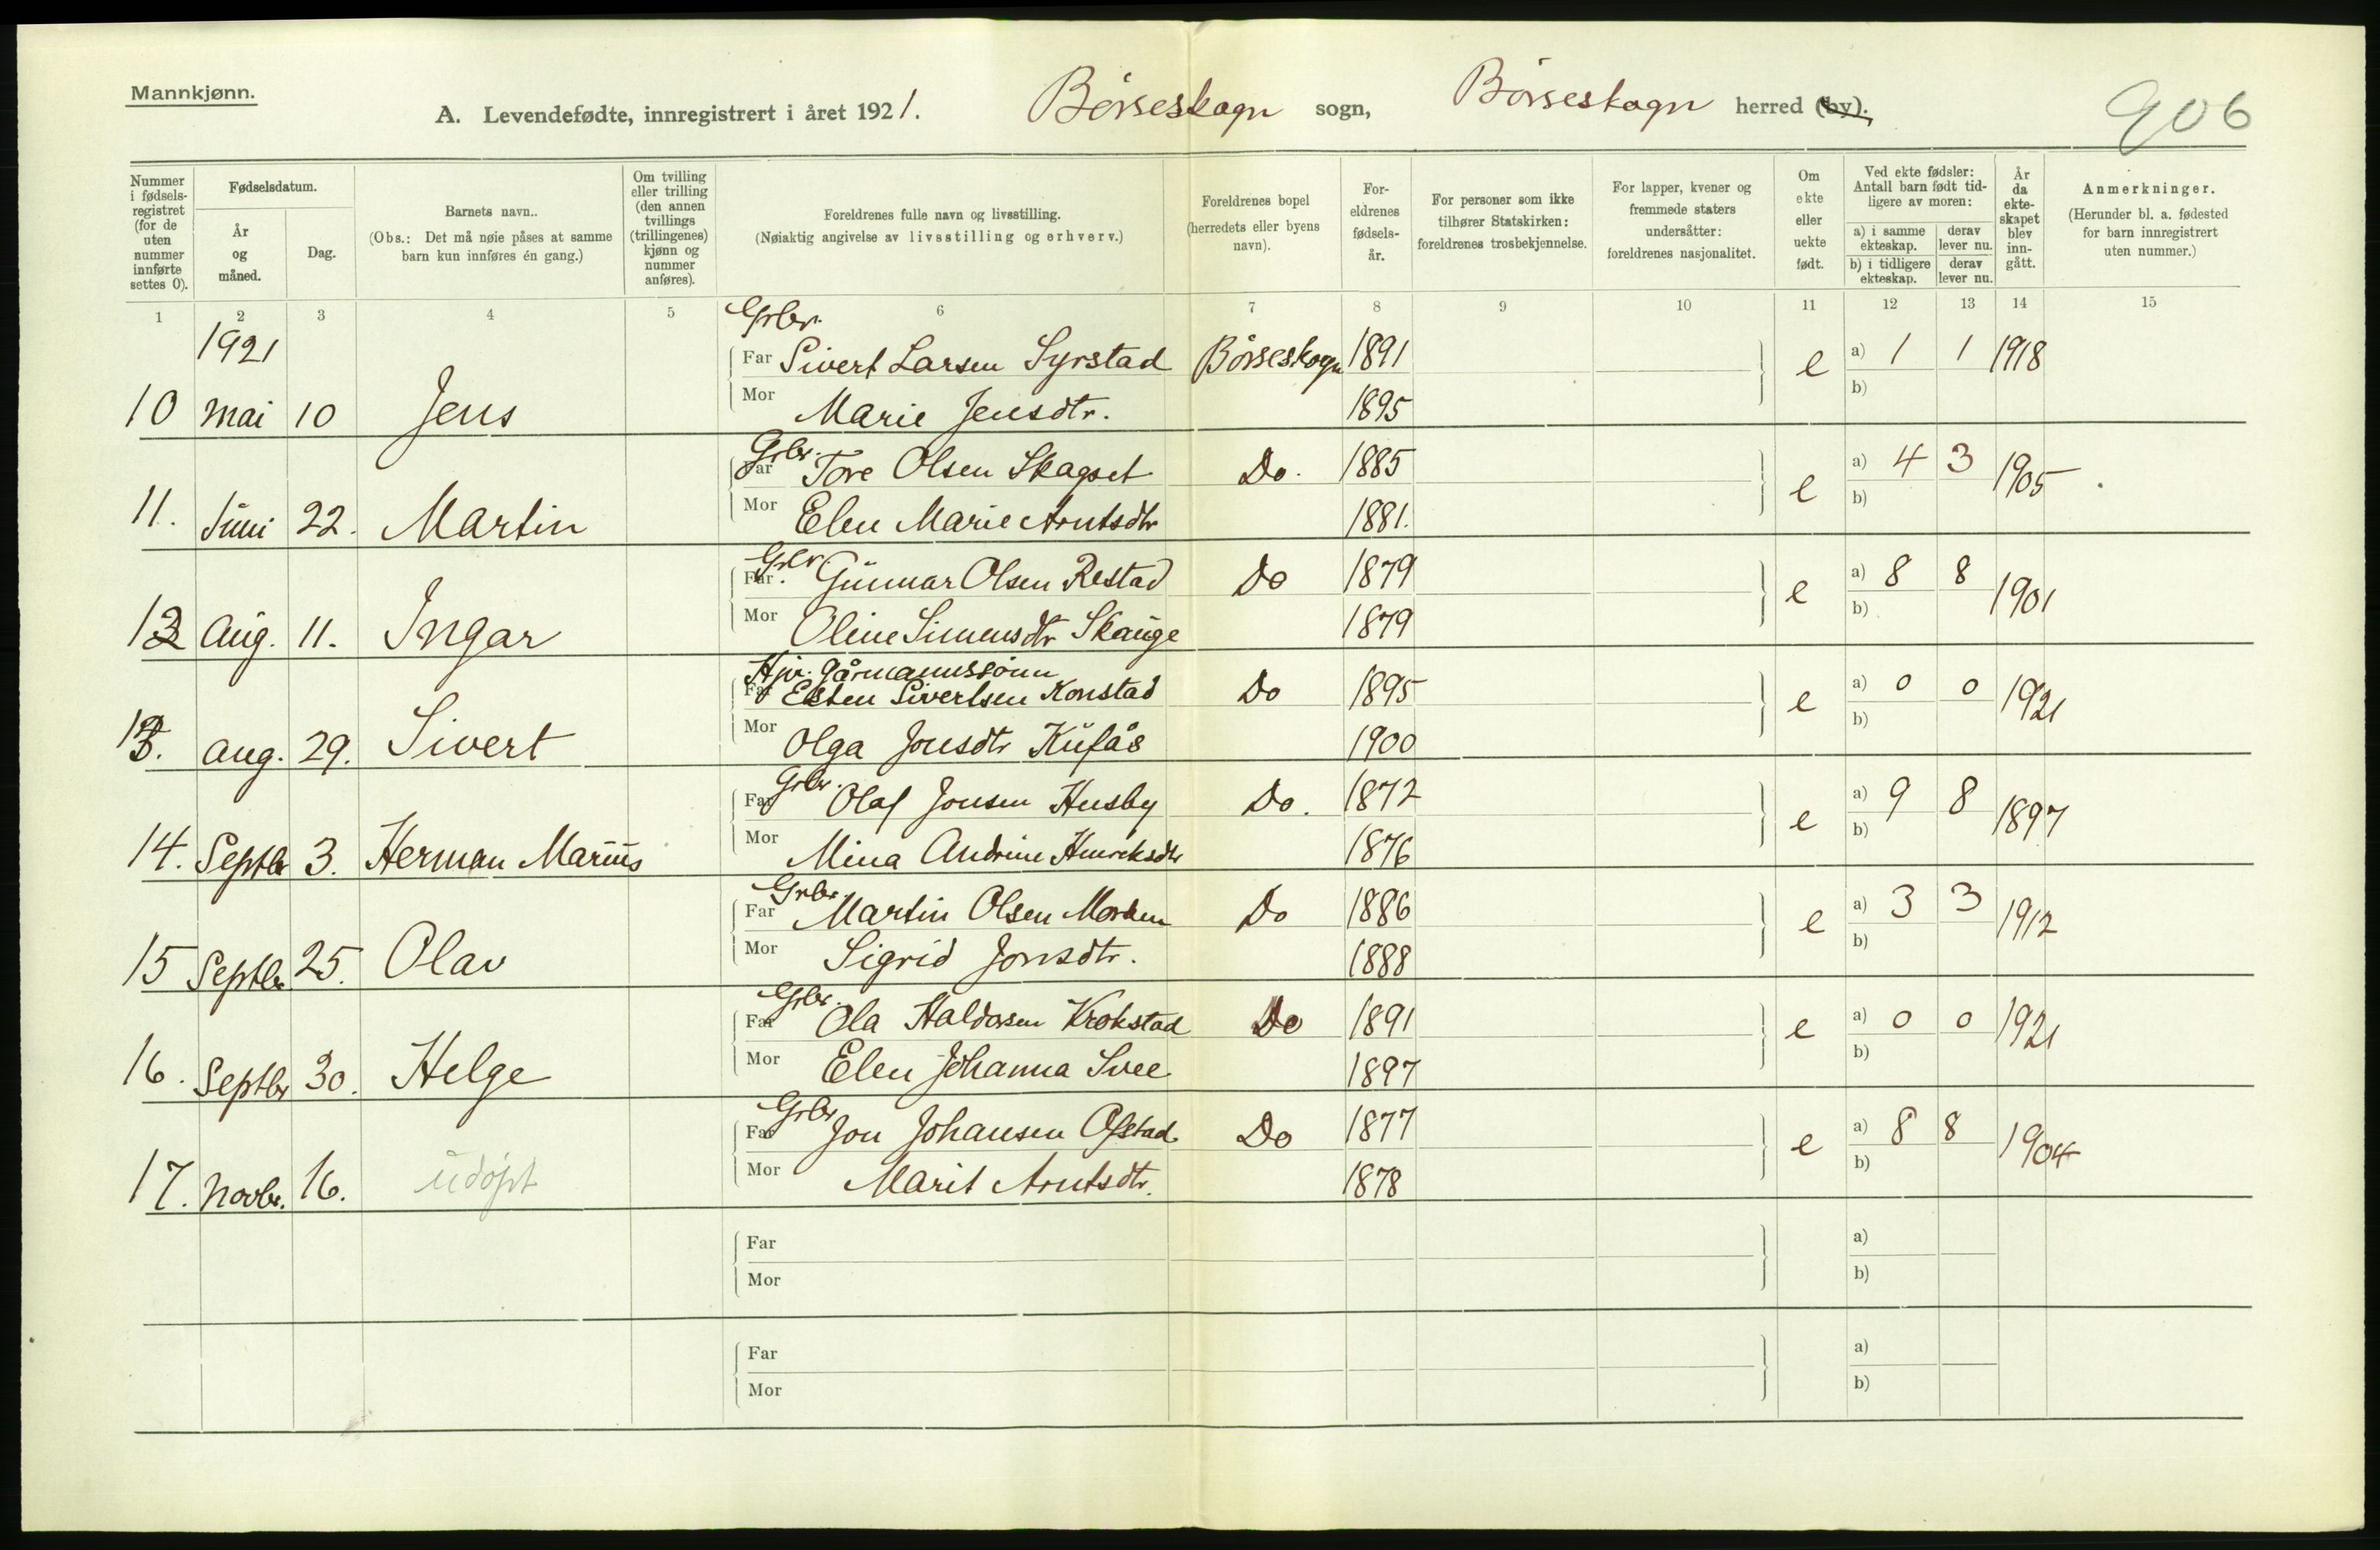 Mannkjønn.
A. Levendefødte, innregistrert i året 1921. Børseskogn sogn, Børseskogn herred (by).
906
Nummer i fødsels-registret (for de uten nummer innførte settes 0).
Fødselsdatum.
År og måned.
Dag.
Barnets navn..
(Obs.: Det må nøie påses at samme barn kun innføres én gang.)
Om tvilling eller trilling (den annen tvillings (trillingenes) kjønn og nummer anføres).
Foreldrenes fulle navn og livsstilling.
(Nøiaktig angivelse av livsstilling og erhverv.)
Foreldrenes bopel (herredets eller byens navn).
For-eldrenes fødsels-år.
For personer som ikke tilhører Statskirken: foreldrenes trosbekjennelse.
For lapper, kvener og fremmede staters undersåtter: foreldrenes nasjonalitet.
Om ekte eller uekte født.
Ved ekte fødsler: Antall barn født tid-ligere av moren:
a) i samme ekteskap. derav lever nu.
b) i tidligere ekteskap. derav lever nu.
År da ekte-skapet blev inn-gått.
Anmerkninger.
(Herunder bl. a. fødested for barn innregistrert uten nummer.)
1 2 3 4 5 6 7 8 9 10 11 12 13 14 15
1921 Grbr.
Far Sivert Larsen Syrstad Børseskogn 1891 e a) 1 1 1918
10 Mai 10 Jens Mor Marie Jensdtr. 1895 b)
Grbr.
Far Tore Olsen Skagset Do. 1885 e a) 4 3 1905
11. Juni 22. Martin Mor Elen Marie Arntsdtr 1881. b)
Grbr.
Far Gunnar Olsen Restad Do 1879 e a) 8 8 1901
12 Aug. 11. Ingar Mor Oline Simensdtr Skauge 1879 b)
Hjv. Gårmannssønn
Far Esten Sivertsen Konstad Do 1895 e a) 0 0 1921
13. Aug. 29. Sivert Mor Olga Jonsdtr Kufås 1900 b)
Grbr.
Far Olaf Jonsen Husby Do. 1872 e a) 9 8 1897
14. Septbr 3. Herman Marius Mor Mina Andrine Henriksdtr 1876 b)
Grbr
Far Martin Olsen Morken Do 1886 e a) 3 3 1912
15 Septbr 25. Olav Mor Sigrid Jonsdtr. 1888 b)
Grbr.
Far Ola Haldosen Krokstad Do 1891 e a) 0 0 1921
16. Septbr 30. Helge Mor Elen Johanna Svee 1897 b)
Grbr
Far Jon Johansen Ofstad Do 1877 e a) 8 8 1904
17. Novbr. 16. udøpt Mor Marit Arntsdtr. 1878 b)
Far a)
Mor b)
Far a)
Mor b)